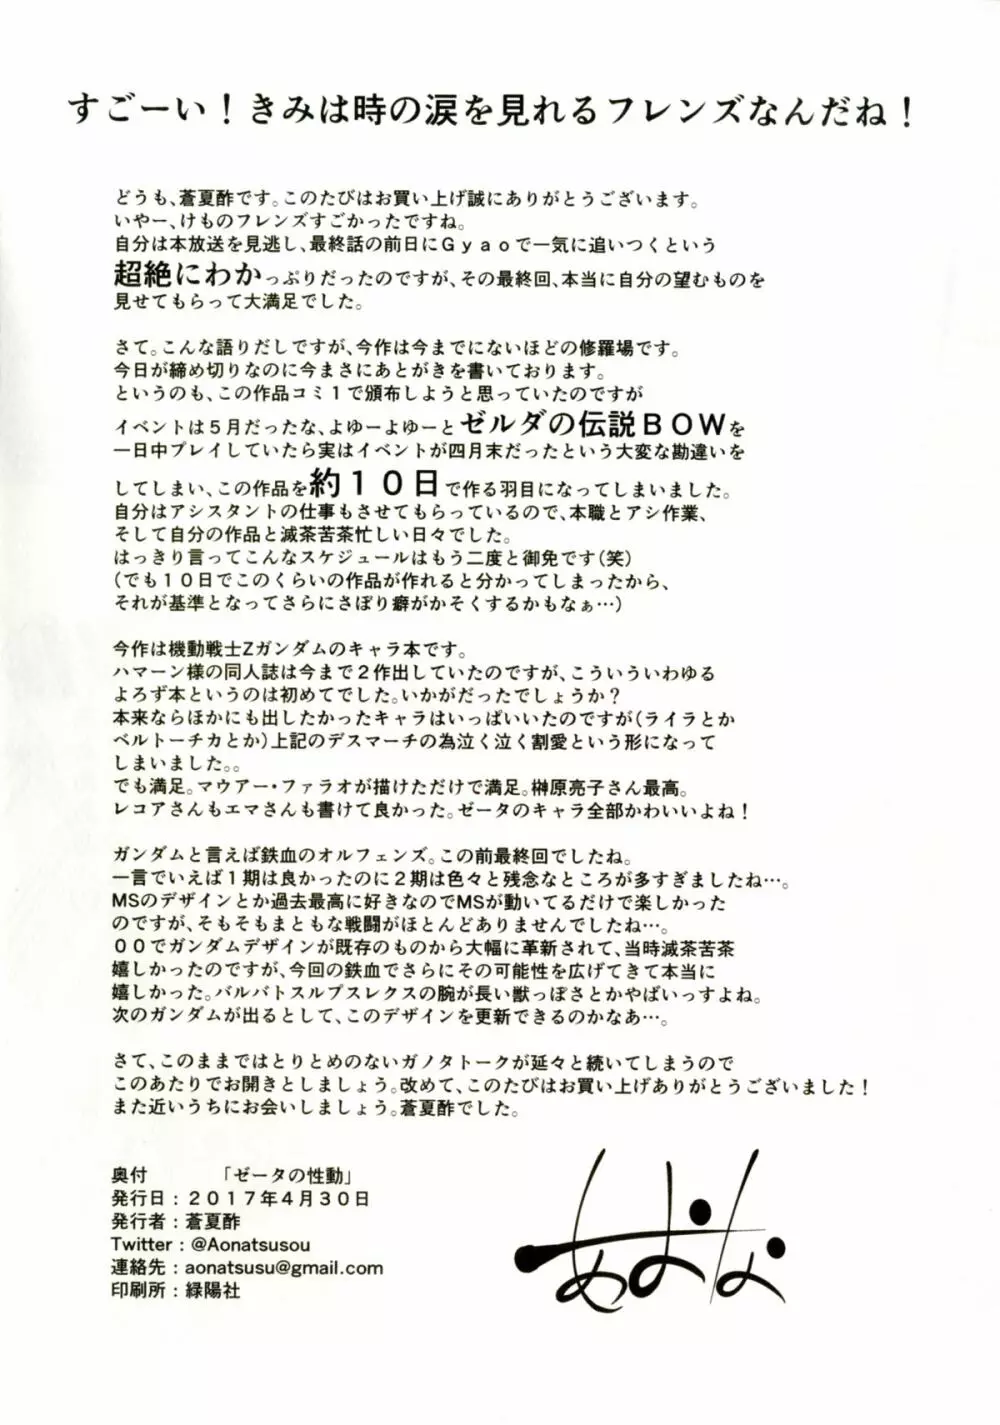 すごーい！きみは時の涙を見れるフレンズなんだね！
どうも、蒼夏酢です。このたびはお買い上げ誠にありがとうございます。
いやー、けものフレンズすごかったですね。
自分は本放送を見逃し、最終話の前日にＧｙａｏで一気に追いつくという
超絶にわかっぷりだったのですが、その最終回、本当に自分の望むものを
見せてもらって大満足でした。
さて。こんな語りだしですが、今作は今までにないほどの修羅場です。
今日が締め切りなのに今まさにあとがきを書いております。
というのも、この作品コミ１で頒布しようと思っていたのですが
イベントは５月だったな、よゆーよゆーとゼルダの伝説ＢＯＷを
一日中プレイしていたら実はイベントが四月末だったという大変な勘違いを
してしまい、この作品を約１０日で作る羽目になってしまいました。
自分はアシスタントの仕事もさせてもらっているので、本職とアシ作業、
そして自分の作品と滅茶苦茶忙しい日々でした。
はっきり言ってこんなスケジュールはもう二度と御免です（笑）
（でも１０日でこのくらいの作品が作れると分かってしまったから、
それが基準となってさらにさぼり癖がかそくするかもなぁ…）
今作は機動戦士Zガンダムのキャラ本です。
ハマーン様の同人誌は今まで２作出していたのですが、こういういわゆる
よろず本というのは初めてでした。いかがだったでしょうか？
本来ならほかにも出したかったキャラはいっぱいいたのですが（ライラとか
ベルトーチカとか）上記のデスマーチの為泣く泣く割愛という形になって
しまいました。。
でも満足。マウアー・ファラオが描けただけで満足。榊原亮子さん最高。
レコアさんもエマさんも書けて良かった。ゼータのキャラ全部かわいいよね！
ガンダムと言えば鉄血のオルフェンズ。この前最終回でしたね。
一言でいえば１期は良かったのに２期は色々と残念なところが多すぎましたね…。
MSのデザインとか過去最高に好きなのでMSが動いてるだけで楽しかった
のですが、そもそもまともな戦闘がほとんどありませんでしたね…。
００でガンダムデザインが既存のものから大幅に革新されて、当時滅茶苦茶
嬉しかったのですが、今回の鉄血でさらにその可能性を広げてきて本当に
嬉しかった。バルバトスルプスレクスの腕が長い獣っぽさとかやばいっすよね。
次のガンダムが出るとして、このデザインを更新できるのかなあ…。
さて、このままではとりとめのないガノタトークが延々と続いてしまうので
このあたりでお開きとしましょう。改めて、このたびはお買い上げありがとうございました！
また近いうちにお会いしましょう。蒼夏酢でした。
奥付　「ゼータの性動」
発行日：２０１７年４月３０日
発行者：蒼夏酢
Twitter：@Aonatsusou
連絡先：aonatsusu@gmail.com
印刷所：緑陽社
あおな